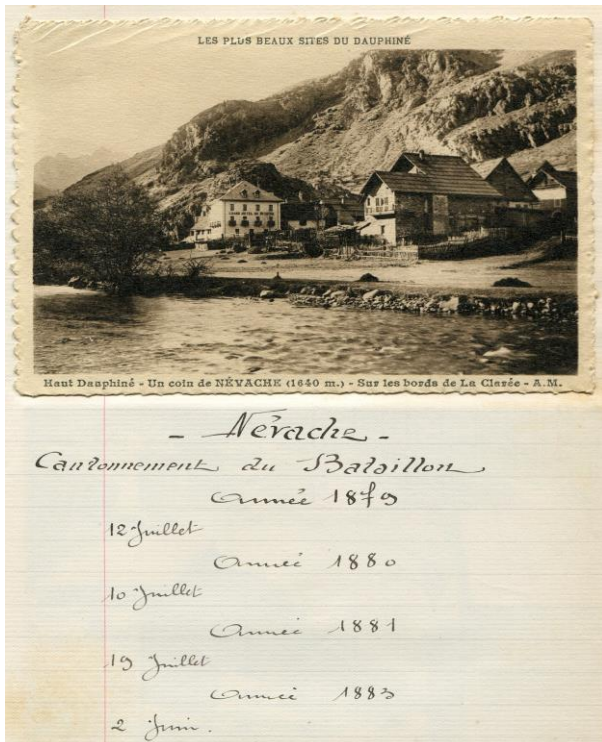 LES PLUS BEAUX SITES DU DAUPHINÉ
Haut Dauphiné - Un coin de NÉVACHE (1640 m.) - Sur les bords de La Clarée - A.M.
- Névache -
Cantonnement du Bataillon
Année 1879
12 Juillet
Année 1880
10 Juillet
Année 1881
19 Juillet
Année 1883
2 Juin.